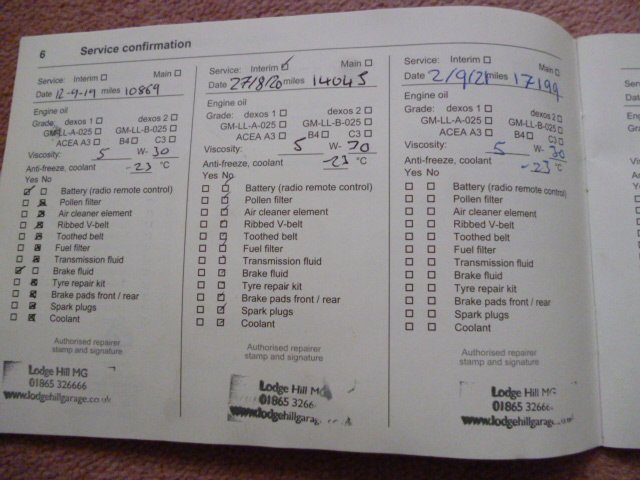 6 Service confirmation
Service: Interim Main
Date 12-9-19 miles 10869
Engine oil
Grade: dexos 1 dexos 2
GM-LL-A-025 GM-LL-B-025
ACEA A3 B4 C3
Viscosity: 5 W- 30
Anti-freeze, coolant -23 °C
Yes No
Battery (radio remote control)
Pollen filter
Air cleaner element
Ribbed V-belt
Toothed belt
Fuel filter
Transmission fluid
Brake fluid
Tyre repair kit
Brake pads front / rear
Spark plugs
Coolant
Authorised repairer
stamp and signature
Lodge Hill MG
01865 326666
www.lodgehillgarage.co.uk
Service: Interim Main
Date 27/8/20 miles 14045
Engine oil
Grade: dexos 1 dexos 2
GM-LL-A-025 GM-LL-B-025
ACEA A3 B4 C3
Viscosity: 5 W- 30
Anti-freeze, coolant -23 °C
Yes No
Battery (radio remote control)
Pollen filter
Air cleaner element
Ribbed V-belt
Toothed belt
Fuel filter
Transmission fluid
Brake fluid
Tyre repair kit
Brake pads front / rear
Spark plugs
Coolant
Authorised repairer
stamp and signature
Lodge Hill MG
01865 3266
www.lodgehillgarag
Service: Interim Main
Date 2/9/21 miles 17199
Engine oil
Grade: dexos 1 dexos 2
GM-LL-A-025 GM-LL-B-025
ACEA A3 B4 C3
Viscosity: 5 W- 30
Anti-freeze, coolant -23 °C
Yes No
Battery (radio remote control)
Pollen filter
Air cleaner element
Ribbed V-belt
Toothed belt
Fuel filter
Transmission fluid
Brake fluid
Tyre repair kit
Brake pads front / rear
Spark plugs
Coolant
Authorised repairer
stamp and signature
Lodge Hill MG
01865 32666
www.lodgehillgarag